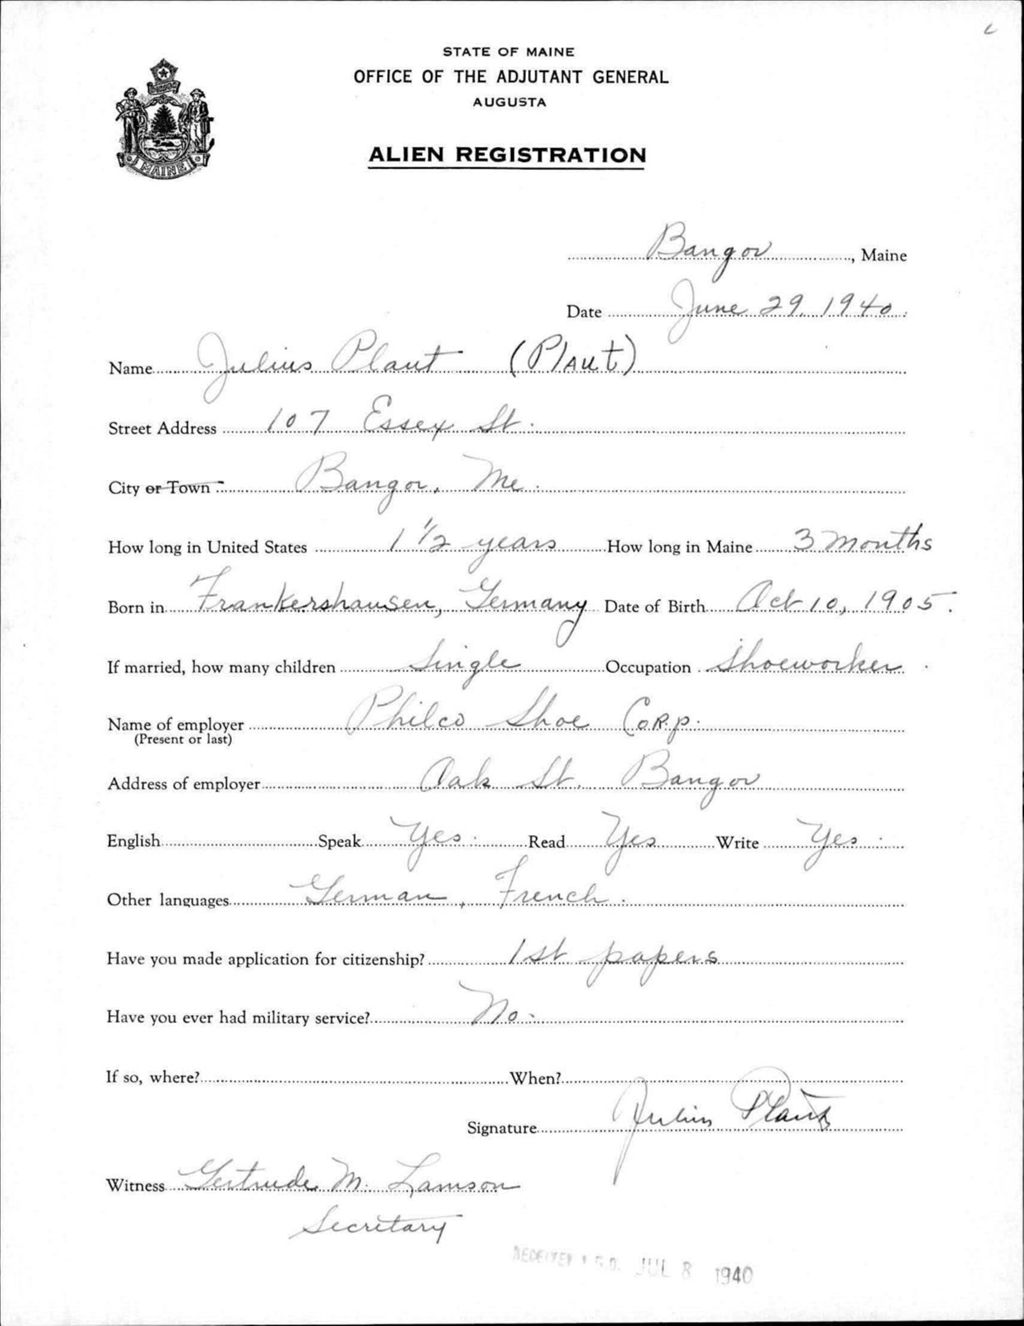 STATE OF MAINE
OFFICE OF THE ADJUTANT GENERAL
AUGUSTA
ALIEN REGISTRATION
MAINE
Bangor, Maine
Date June 29, 1940.
Name Julius Plaut (Plaut)
Street Address 107 Essex St.
City or Town Bangor, Me.
How long in United States 1 1/2 years How long in Maine 3 Months
Born in Frankershausen, Germany Date of Birth Oct 10, 1905.
If married, how many children Single Occupation Shoeworker.
Name of employer Philco Shoe Corp.
(Present or last)
Address of employer Oak St. Bangor
English Speak Yes. Read Yes Write Yes.
Other languages German, French.
Have you made application for citizenship? 1st papers
Have you ever had military service? No.
If so, where? When?
Signature Julius Plaut
Witness Gertrude M. Lamson
Secretary
RECEIVED A.G.O. JUL 8 1940